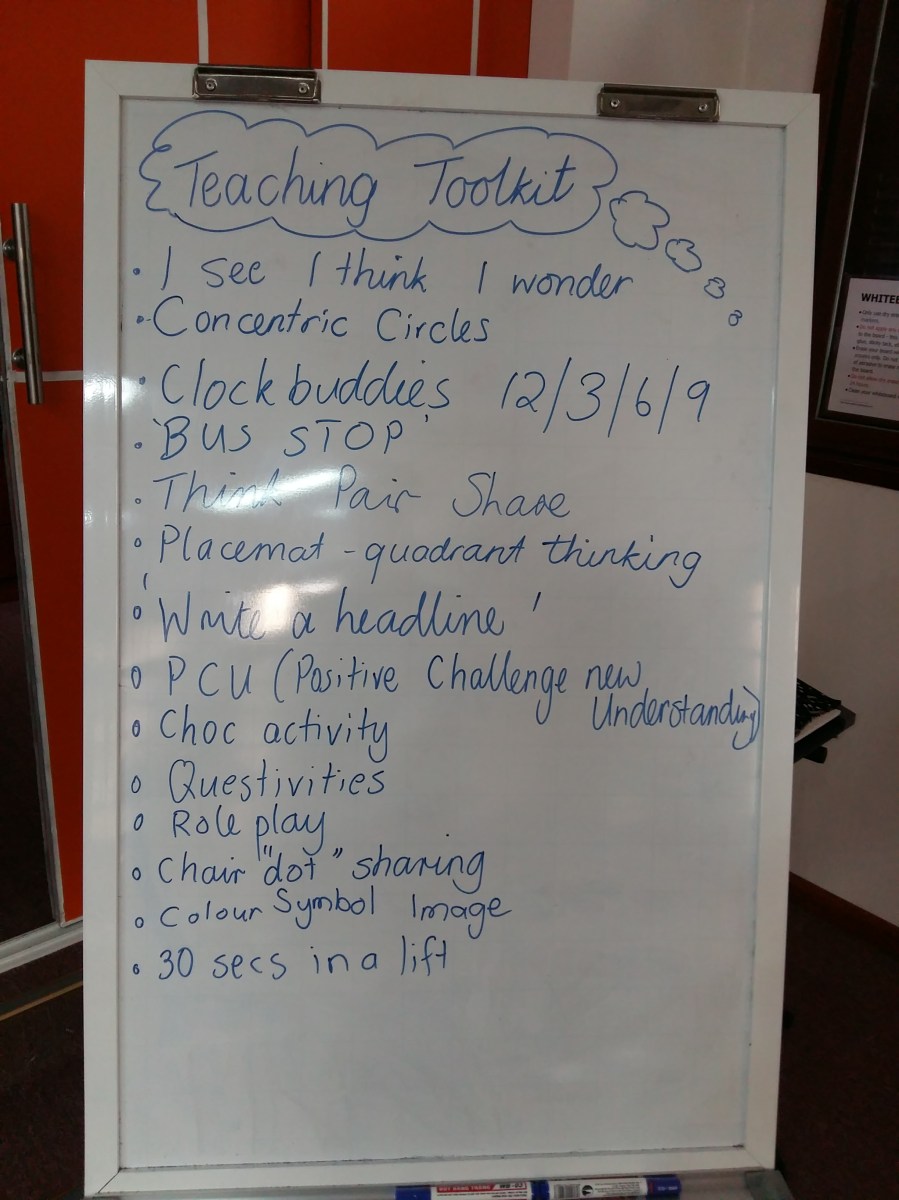 Teaching Toolkit
• I see I think I wonder
• Concentric Circles
• Clock buddies 12/3/6/9
• 'BUS STOP'
• Think Pair Share
• Placemat - quadrant thinking
• 'Write a headline'
• PCU (Positive Challenge new
Understanding)
• Choc activity
• Questivities
• Role play
• Chair "dot" sharing
• Colour Symbol Image
• 30 secs in a lift
WHITEB